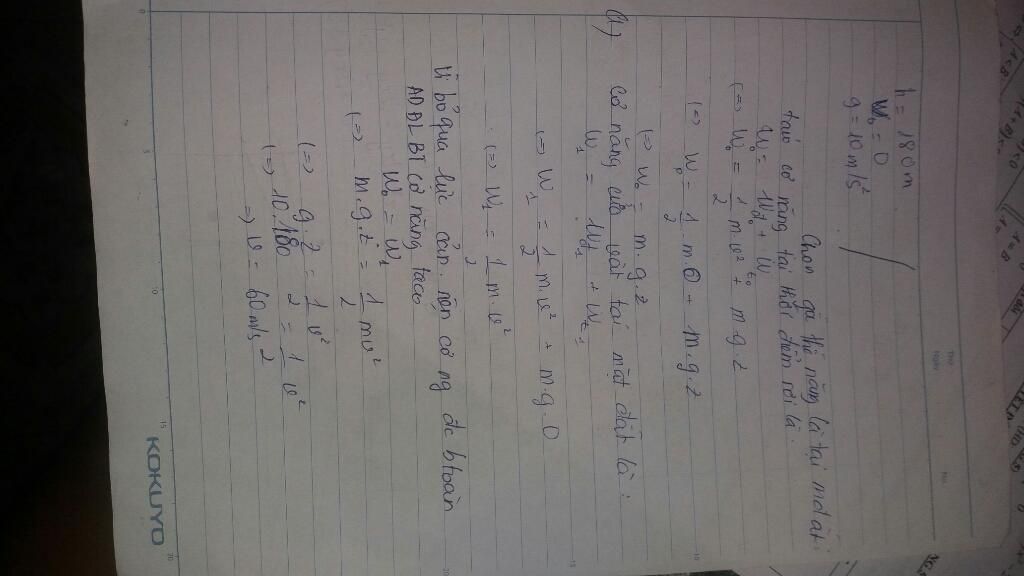 h = 180m
v₀ = 0
g = 10m/s²
Chọn gốc thế năng là tại mđất.
ta có cơ năng tại thời điểm rơi là.
W₀ = Wđ₀ + Wt₀
(=) W₀ = 1/2 m.v² + m.g.z
(=) W₀ = 1/2 .m.0 + m.g.z
(=) W₀ = m.g.z
a) cơ năng của vật tại mặt đất là :
W₁ = Wđ₁ + Wt₁
(=) W₁ = 1/2 m v² + m.g.0
(=) W₁ = 1/2 m.v²
Vì bỏ qua lực cản. nên cơ ng đc btoàn
AD ĐL BT cơ năng taco
W₀ = W₁
(=) m.g.z = 1/2 mv²
(=) g.z = 1/2 v²
(=) 10.180 = 1/2 v²
=) v = 60m/s
KOKUYO
0
5
10
15
20
No